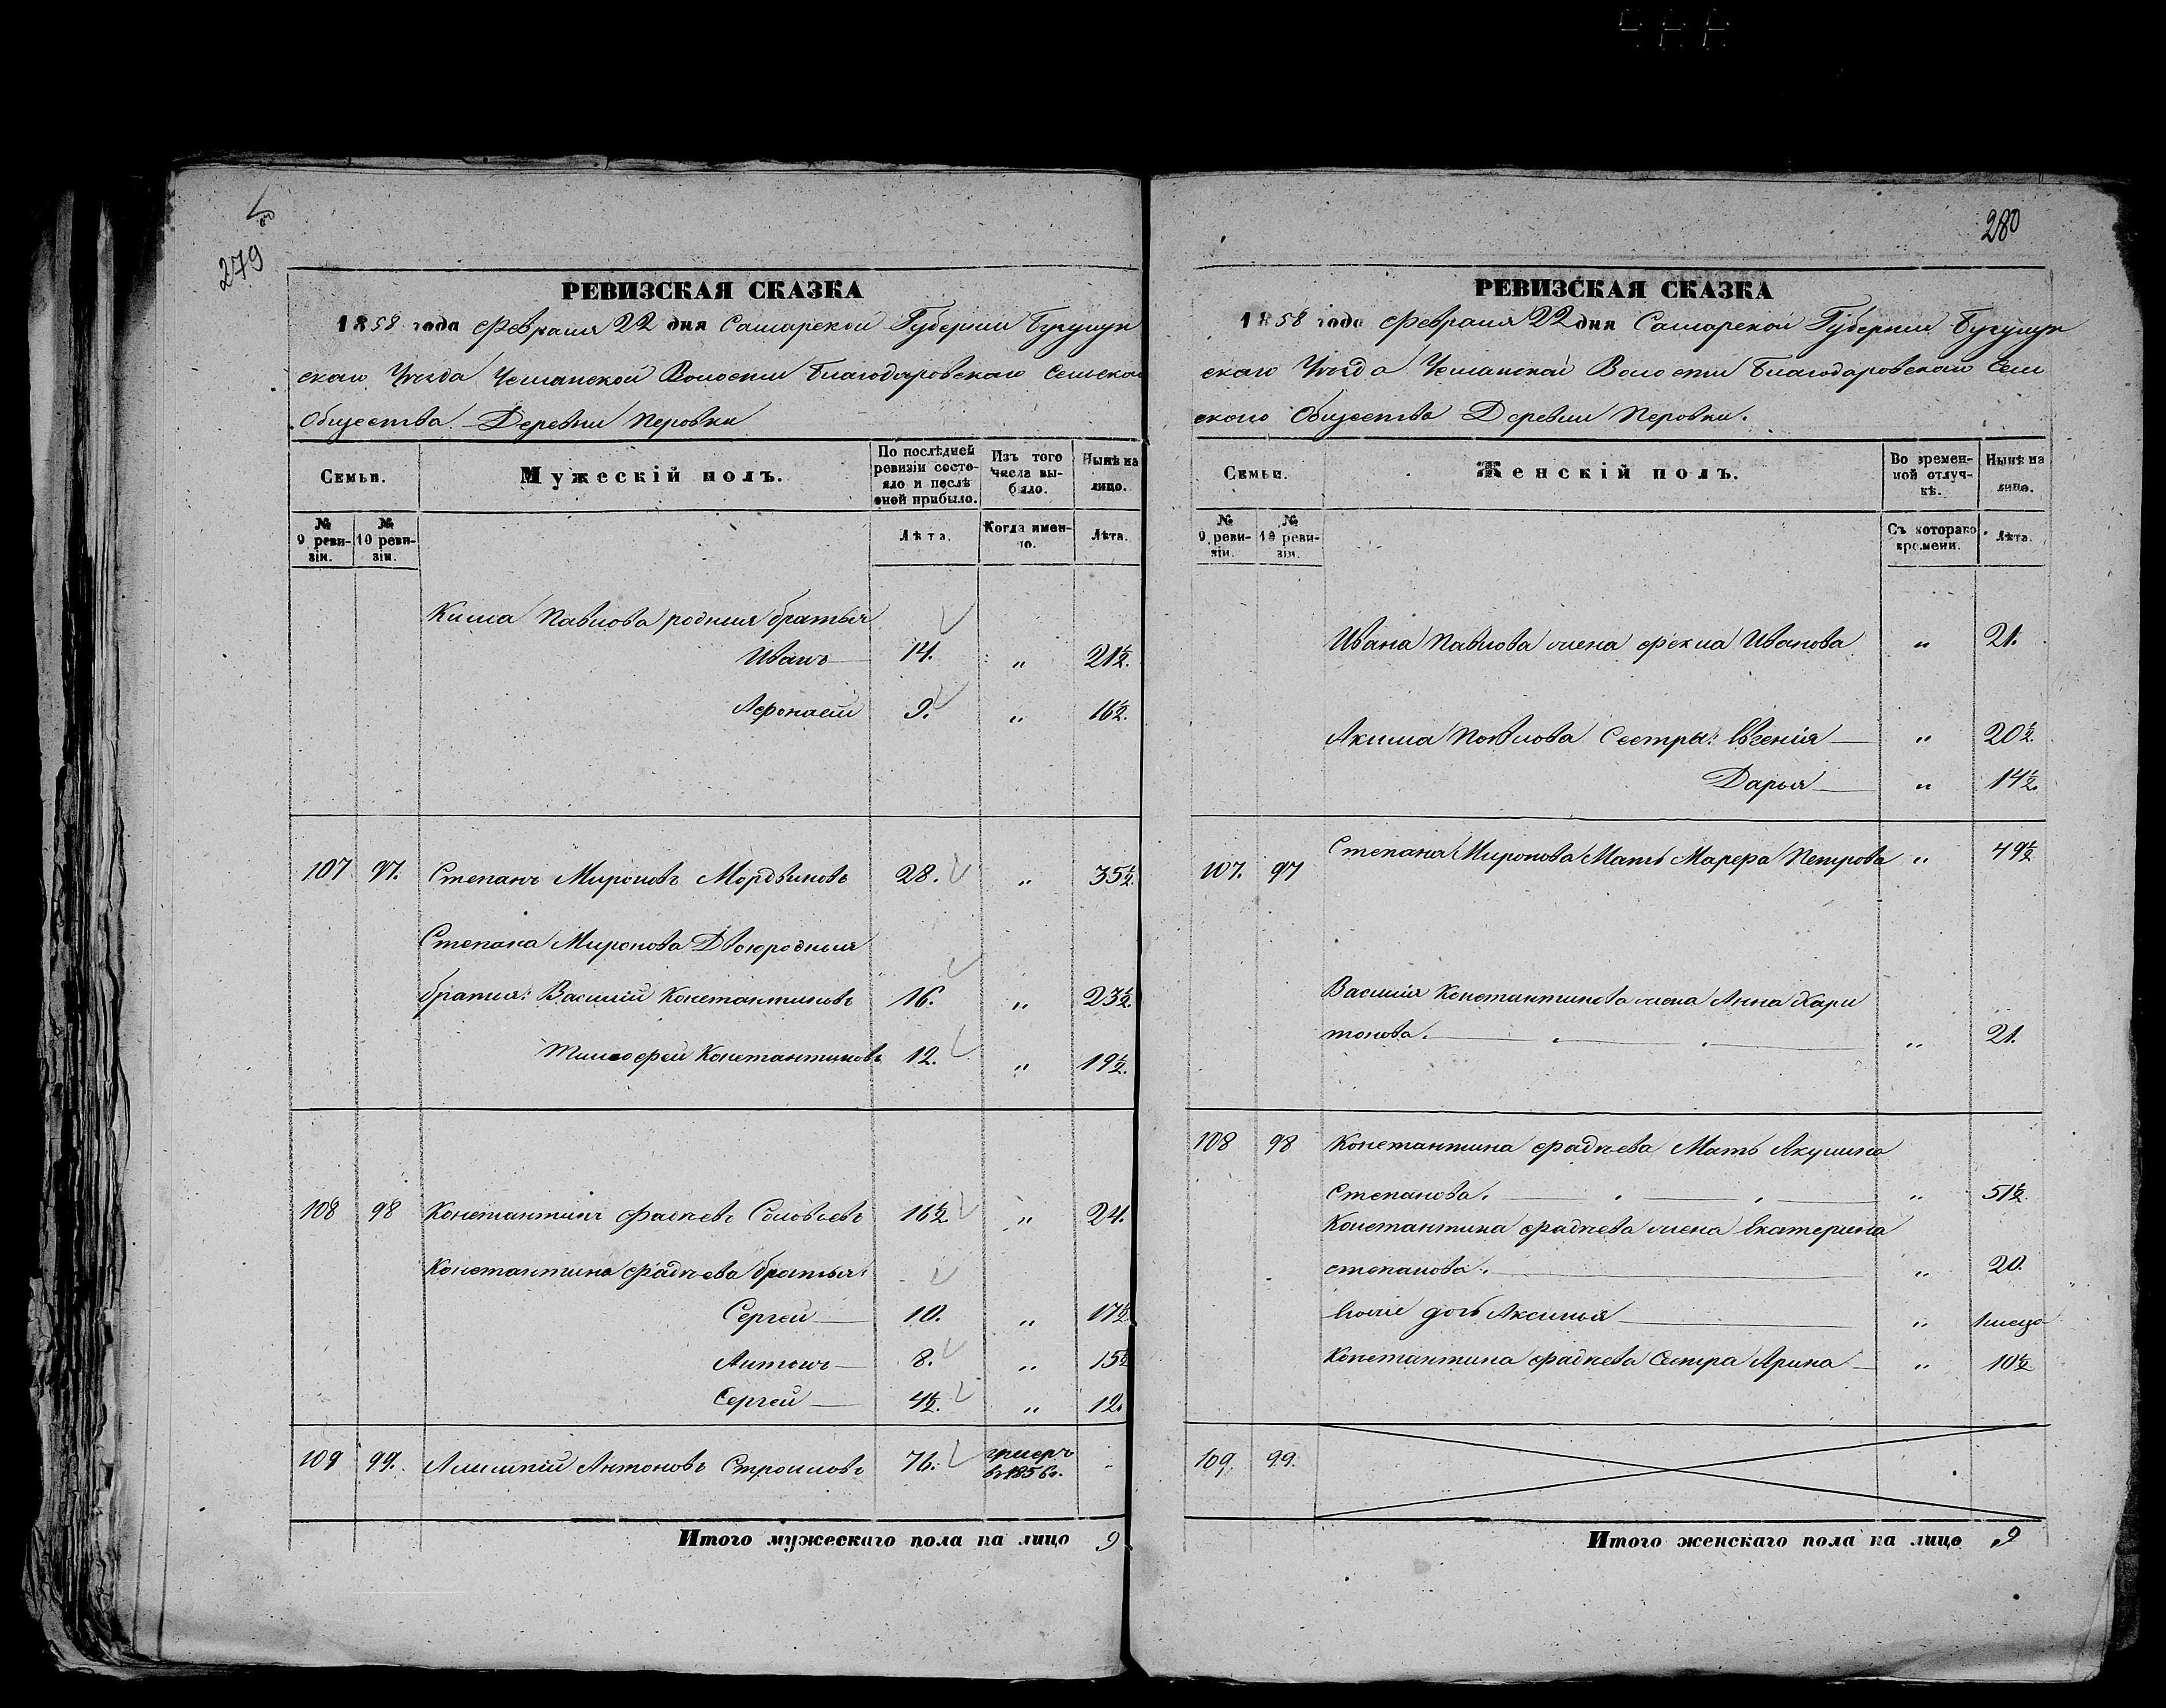 279
РЕВИЗСКАЯ СКАЗКА
1858 года Февраля 22 дня Самарской Губерніи Бугурус
скаго Уѣзда Волости Благодаровскаго Сельскаго
Общества Деревни Перовки
Семьи.
Мужескій полъ.
По послѣдней ревизіи состояло и послѣ оной прибыло.
Изъ того числа выбыло.
Нынѣ на лицо.
№ 9 ревизіи.
№ 10 ревизіи.
Лѣта.
Когда именно.
Лѣта.
Павлова родныя братья
Иванъ 14. „ 21½.
Афонасій 9. „ 16½.
107 97. Степанъ Мироновъ Мордвиновъ 28. „ 35½.
Степана Миронова Двоюродныя
братья: Василій Константиновъ 16. „ 23½.
Тимофей Константиновъ 12. „ 19½.
108 98 Константинъ Фадѣевъ Соловьевъ 16½ „ 24.
Константина Фадѣева братья:
Сергей 10. „ 17½
Антонъ 8. „ 15½
Сергей 4½. „ 12.
109 99. Алимпій Антоновъ Строиловъ 76. умеръ
в 185
Итого мужескаго пола на лицо 9
280
РЕВИЗСКАЯ СКАЗКА
1858 года Февраля 22 дня Самарской Губерніи Бугурус
скаго Уѣзда Волости Благодаровскаго Сель
скаго Общества Деревни Перовки.
Семьи.
Женскій полъ.
Во временной отлучкѣ.
Нынѣ на лицо.
№ 9 ревизіи.
№ 10 ревизіи.
Съ котораго времени.
Лѣта.
Ивана Павлова жена Фекла Иванова „ 21.
Акима Павлова Сестры: Евгенія „ 20½.
Дарья „ 14½.
107. 97 Степана Миронова Мать Марфа Петрова „ 49½
Василія Константинова жена Анна Хари
тонова. „ 21.
108 98 Константина Фадѣева Мать Акулина
Степанова. „ 51½
Константина Фадѣева жена Екатерина
степанова. „ 20.
дочь Аксинья „ 1 месяца
Константина Фадѣева Сестра Арина „ 10½
109. 99.
Итого женскаго пола на лицо 9